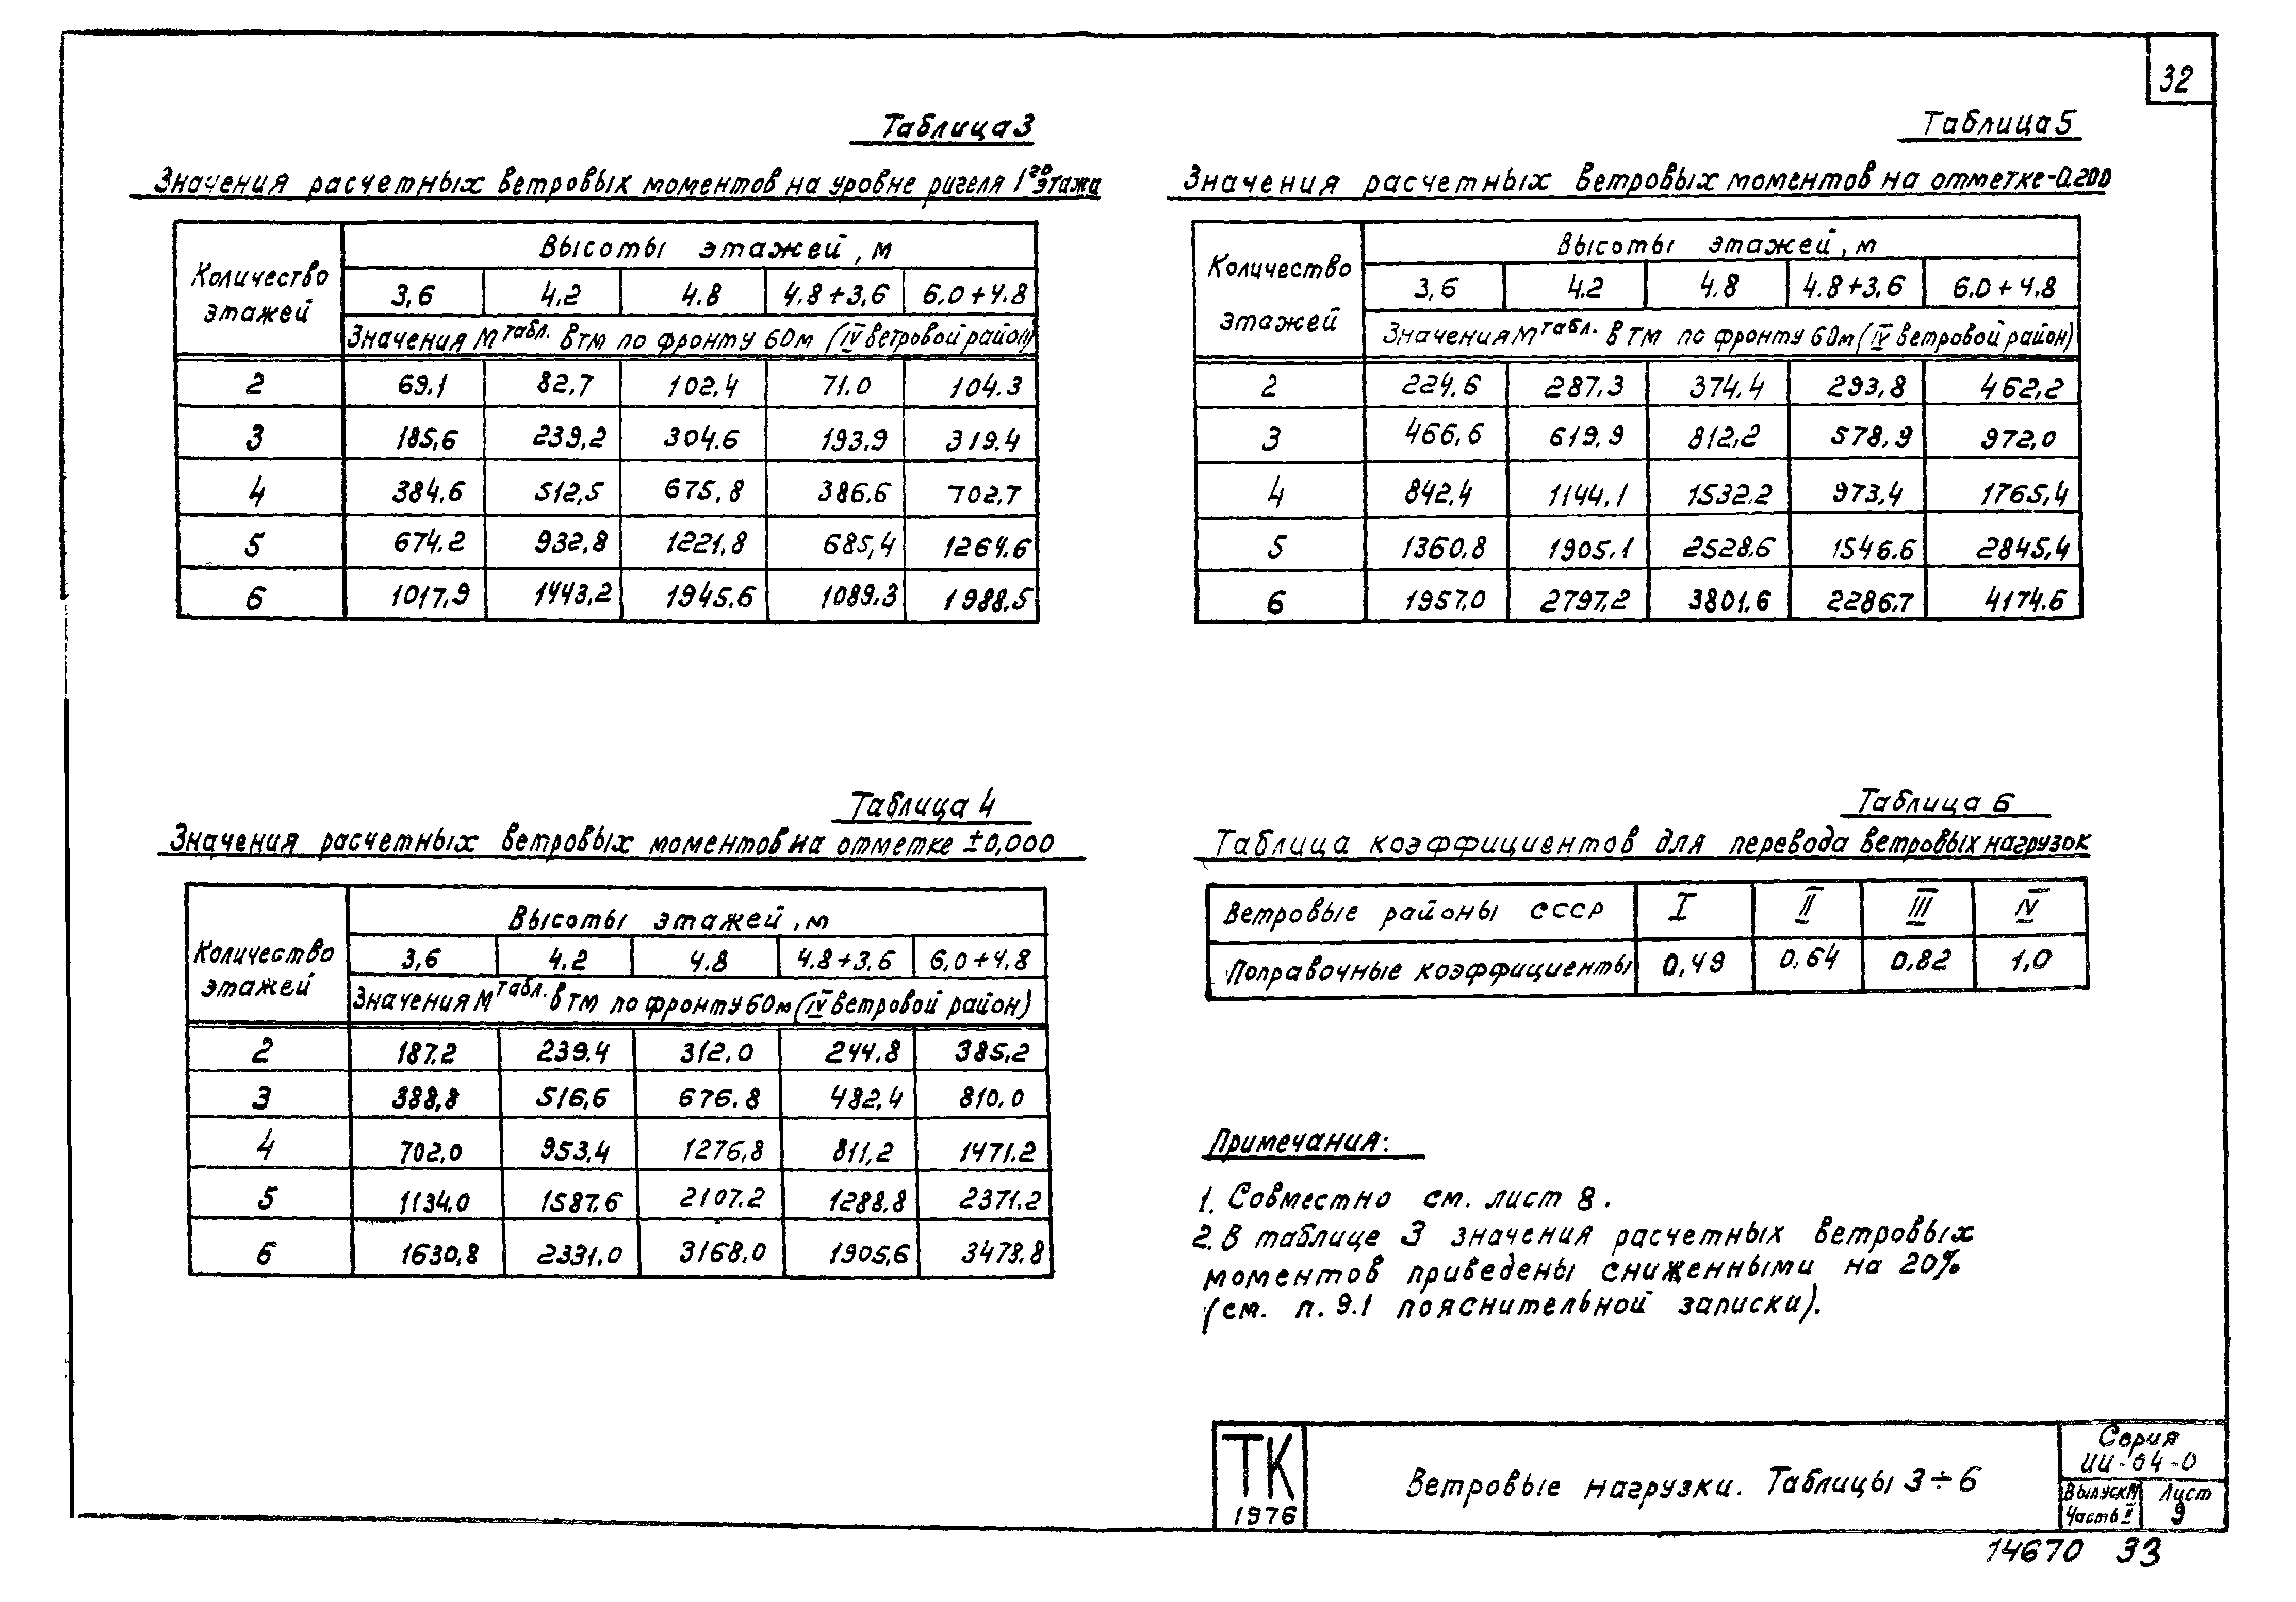 32
Таблица 3
Значения расчетных ветровых моментов на уровне ригеля 1го этажа
Количество этажей
Высоты этажей, м
3,6 4.2 4.8 4.8+3,6 6.0+4.8
Значения Mтабл. в тм по фронту 60м (IV ветровой район)
2 69.1 82.7 102.4 71.0 104.3
3 185,6 239,2 304.6 193.9 319.4
4 384.6 512,5 675.8 386.6 702,7
5 674.2 932,8 1221,8 685,4 1264.6
6 1017,9 1443,2 1945.6 1089.3 1988.5
Таблица 5
Значения расчетных ветровых моментов на отметке -0.200
Количество этажей
Высоты этажей, м
3,6 4.2 4.8 4.8+3.6 6.0+4.8
Значения Mтабл. в тм по фронту 60м (IV ветровой район)
2 224.6 287.3 374.4 293,8 462,2
3 466,6 619,9 812,2 578,9 972,0
4 842,4 1144,1 1532.2 973,4 1765,4
5 1360,8 1905,1 2528.6 1546.6 2845,4
6 1957.0 2797,2 3801.6 2286.7 4174.6
Таблица 4
Значения расчетных ветровых моментов на отметке ±0,000
Количество этажей
Высоты этажей, м
3,6 4.2 4.8 4.8+3,6 6,0+4.8
Значения Mтабл. в тм по фронту 60м (IV ветровой район)
2 187.2 239.4 312,0 244.8 385,2
3 388,8 516,6 676.8 482,4 810.0
4 702,0 953,4 1276,8 811,2 1471.2
5 1134.0 1587.6 2107.2 1288.8 2371.2
6 1630,8 2331.0 3168,0 1905,6 3478.8
Таблица 6
Таблица коэффициентов для перевода ветровых нагрузок
Ветровые районы СССР I II III IV
Поправочные коэффициенты 0,49 0,64 0,82 1,0
Примечания:
1. Совместно см. лист 8.
2. В таблице 3 значения расчетных ветровых
моментов приведены сниженными на 20%
(см. п. 9.1 пояснительной записки).
ТК
1976
Ветровые нагрузки. Таблицы 3÷6
Серия
ИИ-04-0
Выпуск
Часть II
Лист
9
14670 33